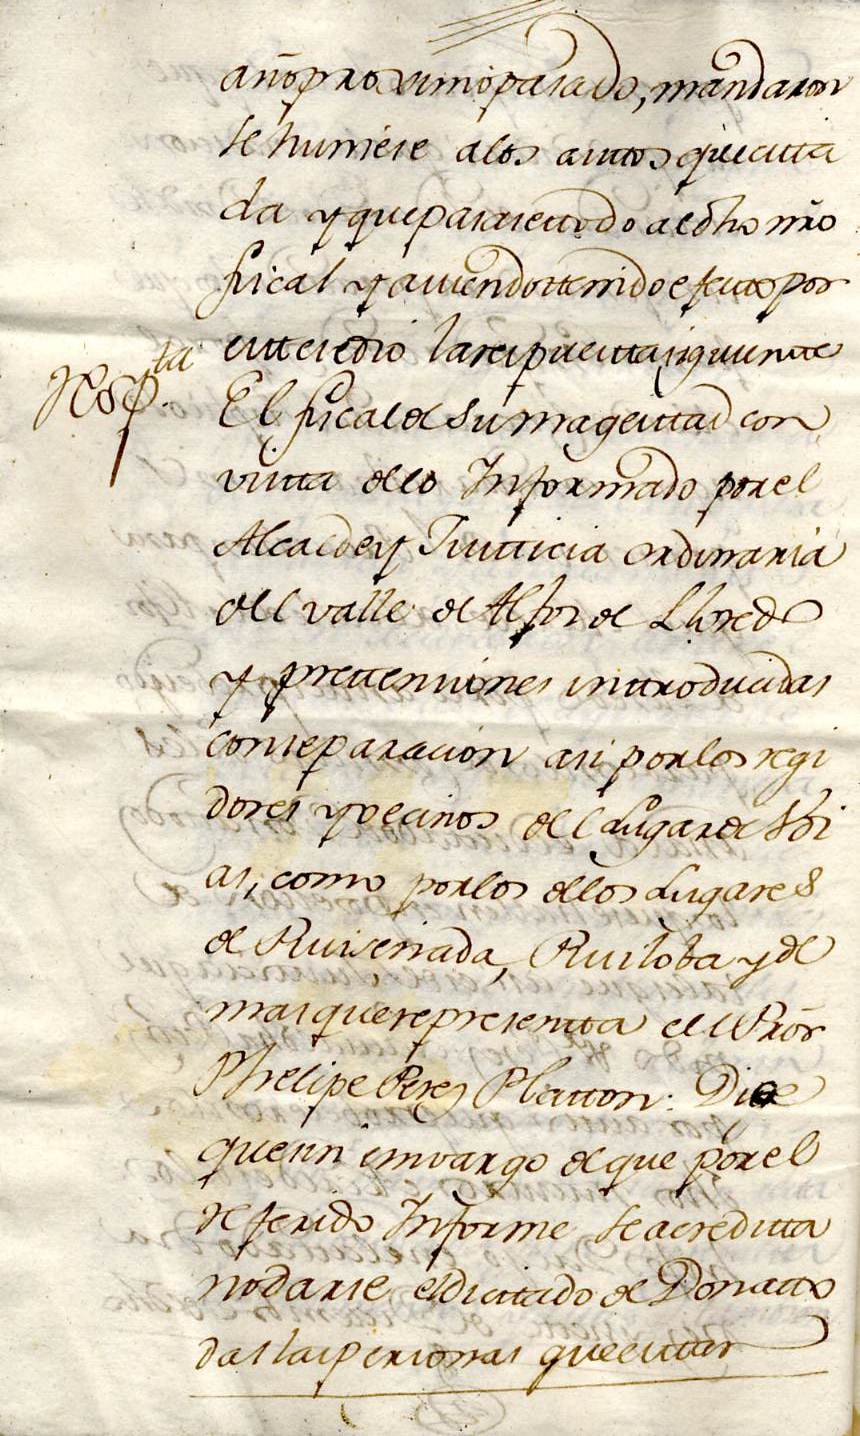 año proximo pasado, mandaron
se huniese a los auttos que estta
da y que pasase ttodo al dho nrõ
fiscal y auiendo ttenido efectto por
estte se dio la respuestta siguiente
Respta
El fiscal de su magesttad con
vistta de lo Informado por el
Alcalde y Justticia ordinaria
del valle de Alfoz de Lloredo
y prettensiones inttroducidas
con separacion asi por los regi
dores y vecinos del Lugar de
as, como por los de los Lugares
de Ruiseñada, Ruiloba y de
mas que representta el Prõr
Phelipe Perez Platton: Dice
que sin embargo de que por el
referido Informe se acreditta
no darse el dicttado de Don a tto
das las personas que esttan